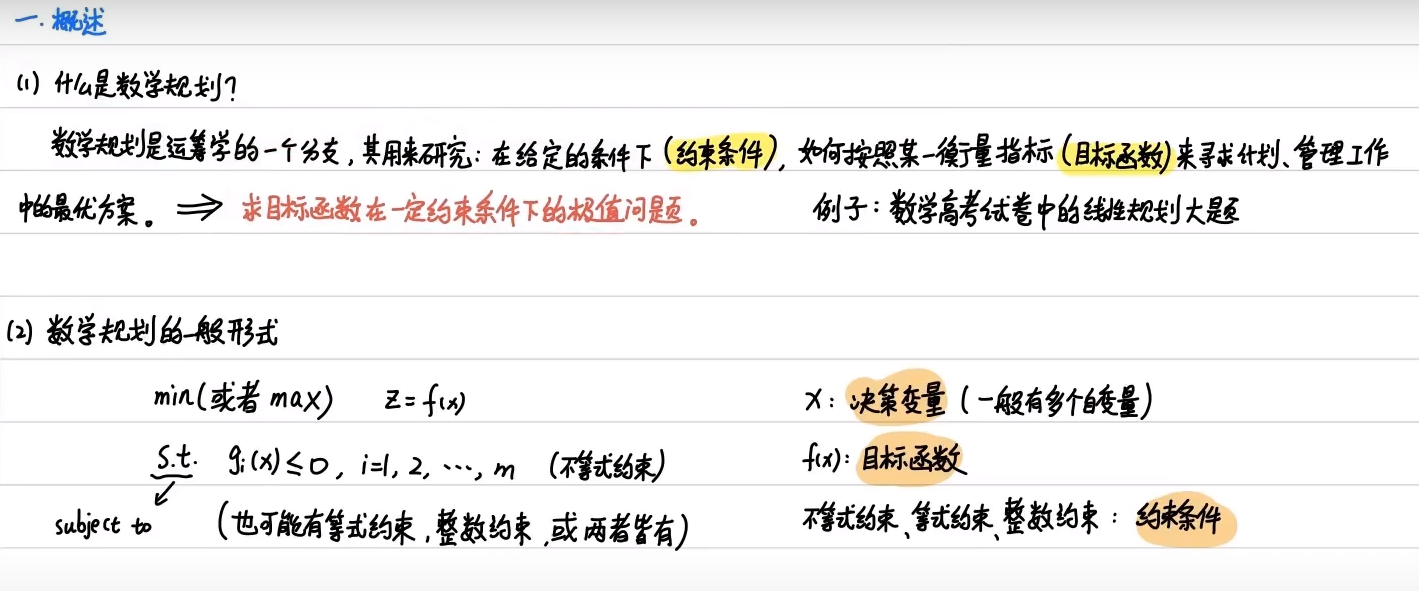 一. 概述
(1) 什么是数学规划?
数学规划是运筹学的一个分支,其用来研究:在给定的条件下(约束条件),如何按照某一衡量指标(目标函数)来寻求计划、管理工作
中的最优方案。⇒ 求目标函数在一定约束条件下的极值问题。 例子:数学高考试卷中的线性规划大题
(2) 数学规划的一般形式
min(或者 max) z = f(x) x: 决策变量 (一般有多个自变量)
s.t. gᵢ(x) ≤ 0, i=1, 2, ⋯, m (不等式约束) f(x): 目标函数
subject to (也可能有等式约束,整数约束,或两者皆有) 不等式约束、等式约束、整数约束: 约束条件